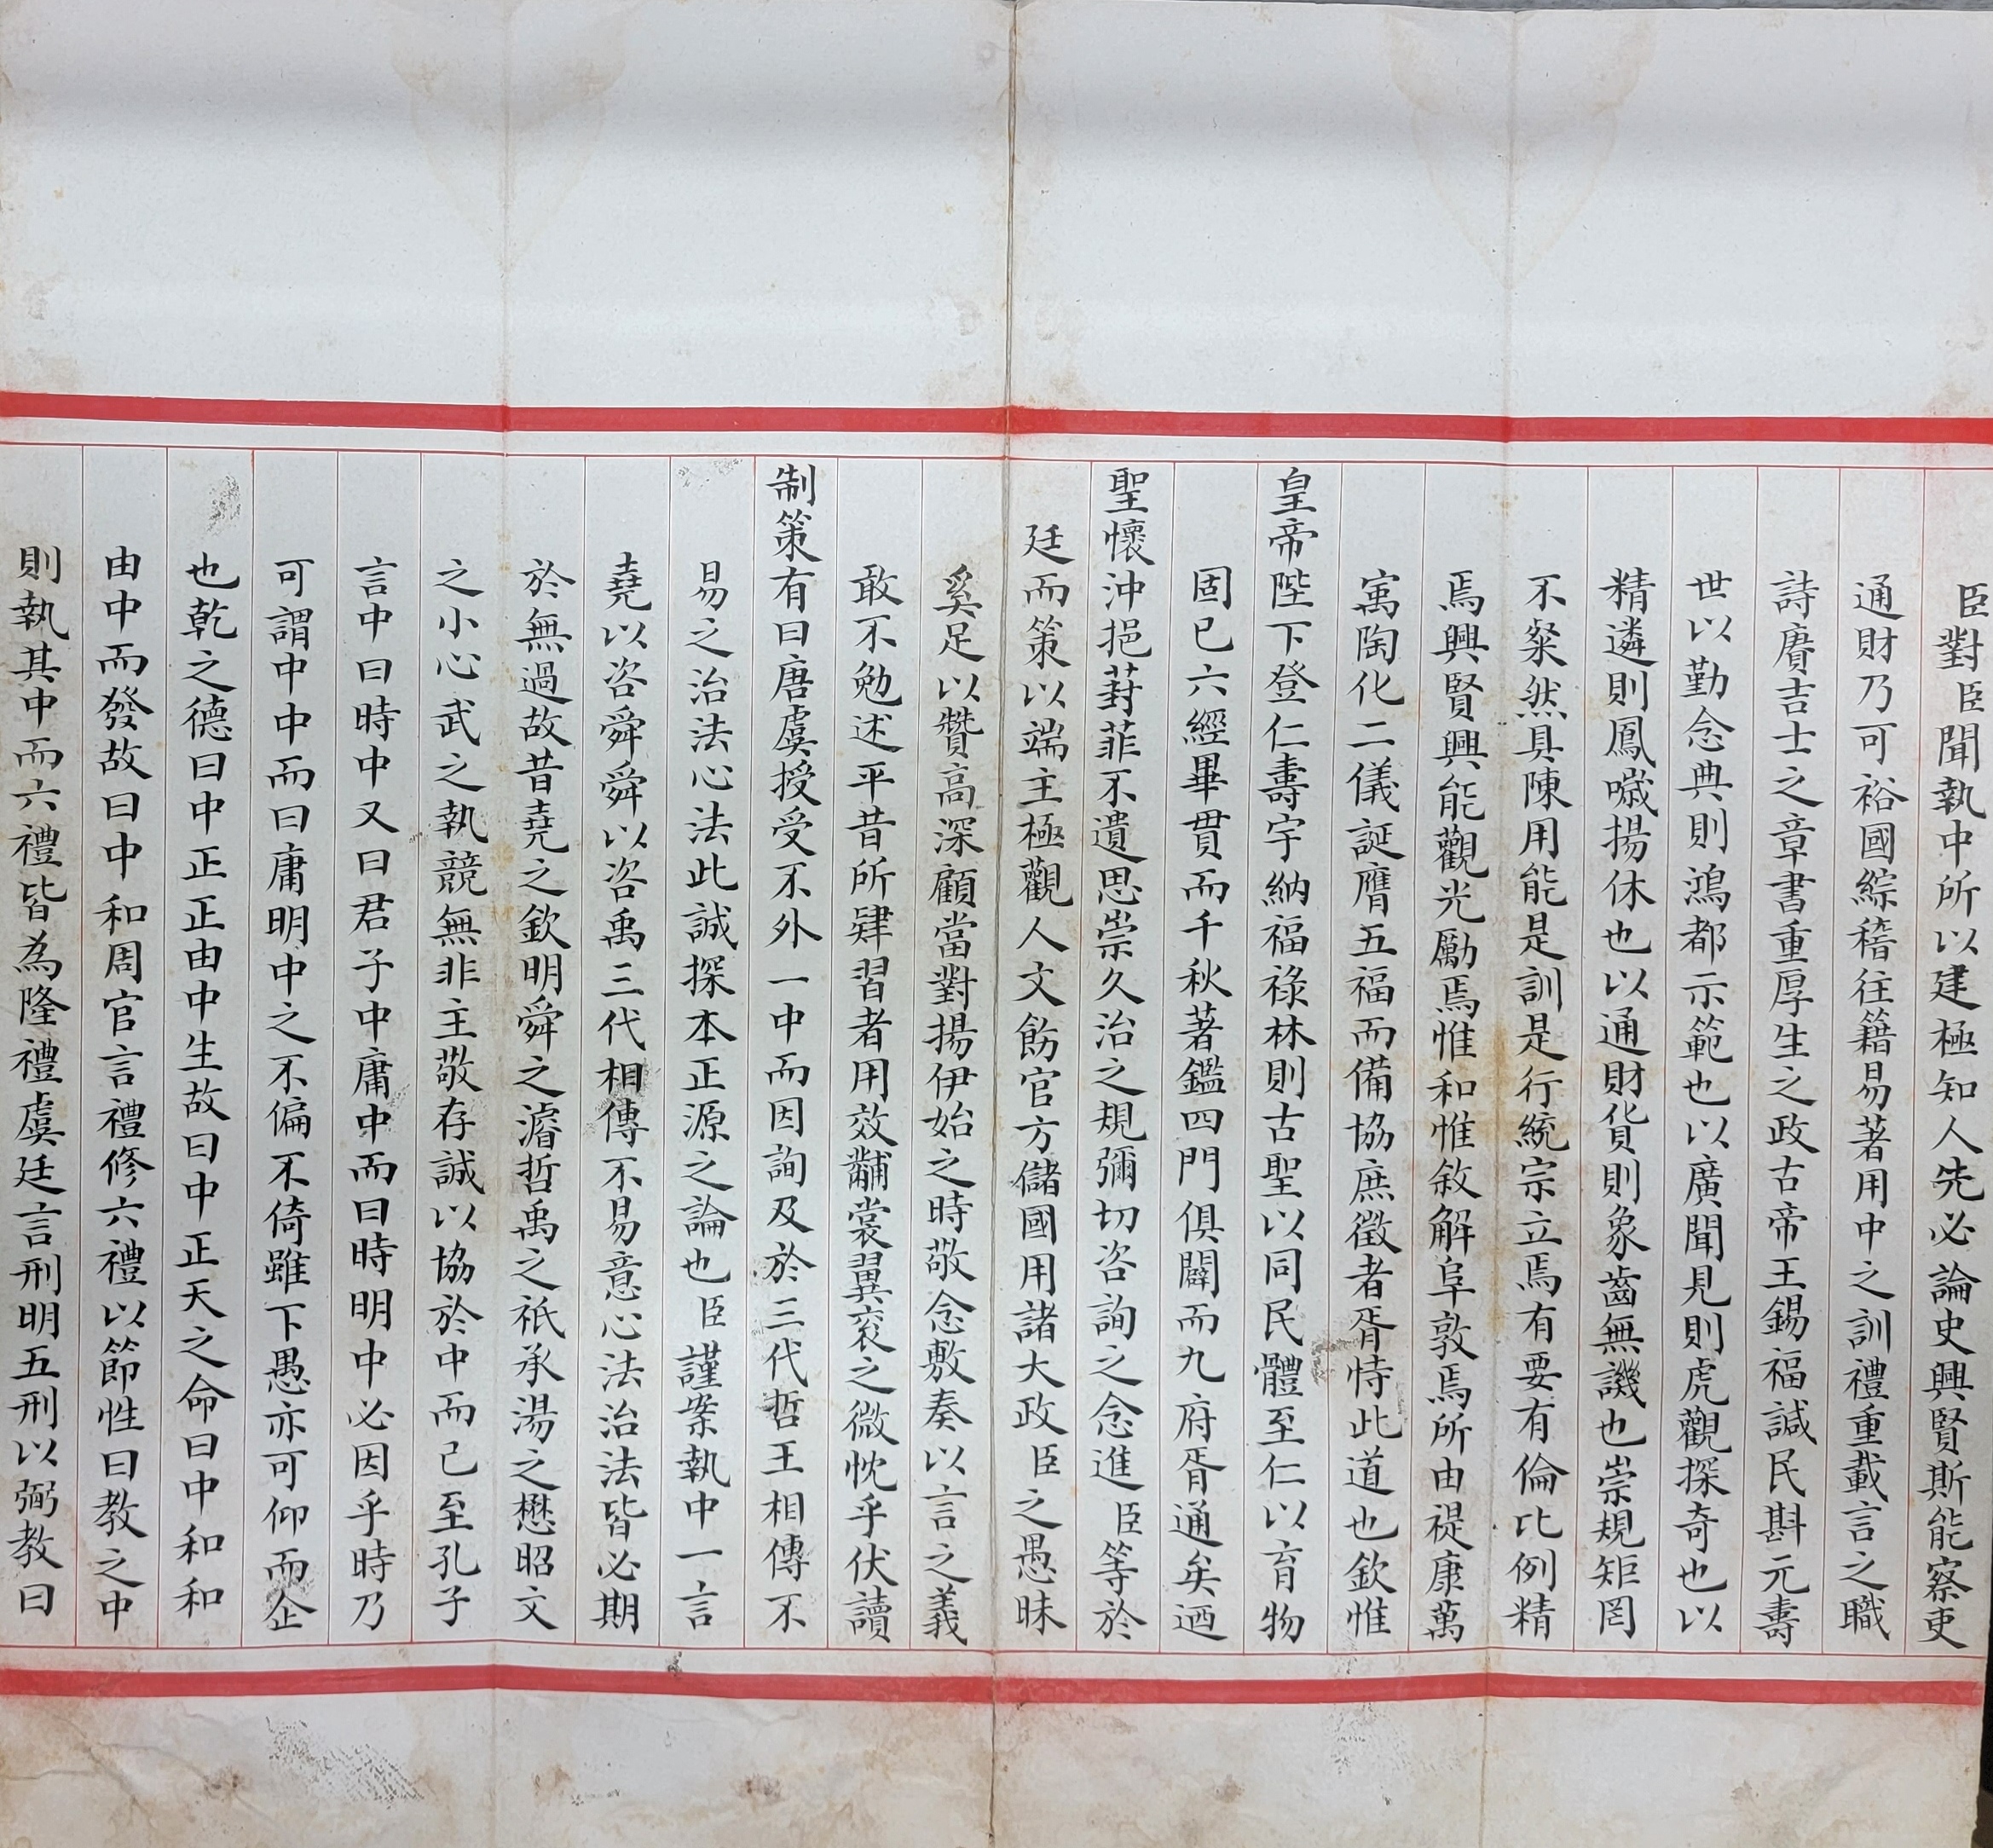 臣對臣聞執中所以建極知人先必論史興賢斯能察吏
通財乃可裕國綜稽往籍易著用中之訓禮重載言之職
詩賡吉士之章書重厚生之政古帝王錫福諴民斟元壽
世以勤念典則鴻都示範也以廣聞見則虎觀探奇也以
精遴則鳳噦揚休也以通財貨則象齒無譏也崇規矩罔
不粲然具陳用能是訓是行統宗立焉有要有倫比例精
焉興賢興能觀光勵焉惟和惟敘解阜敦焉所由禔康萬
寓陶化二儀誕膺五福而備協庶徵者胥恃此道也欽惟
皇帝陛下登仁壽宇納福祿林則古聖以同民體至仁以育物
固已六經畢貫而千秋著鑑四門俱闢而九府胥通矣迺
聖懷沖挹葑菲不遺思崇久治之規彌切咨詢之念進臣等於
廷而策以端主極觀人文飭官方儲國用諸大政臣之愚昧
奚足以贊高深顧當對揚伊始之時敬念敷奏以言之義
敢不勉述平昔所肄習者用效黼裳翼袞之微忱乎伏讀
制策有曰唐虞授受不外一中而因詢及於三代哲王相傳不
易之治法心法此誠探本正源之論也臣謹案執中一言
堯以咨舜舜以咨禹三代相傳不易意心法治法皆必期
於無過故昔堯之欽明舜之濬哲禹之祇承湯之懋昭文
之小心武之執競無非主敬存誠以協於中而已至孔子
言中曰時中又曰君子中庸中而曰時明中必因乎時乃
可謂中中而曰庸明中之不偏不倚雖下愚亦可仰而企
也乾之德曰中正正由中生故曰中正天之命曰中和和
由中而發故曰中和周官言禮修六禮以節性曰教之中
則執其中而六禮皆為隆禮虞廷言刑明五刑以弼教曰